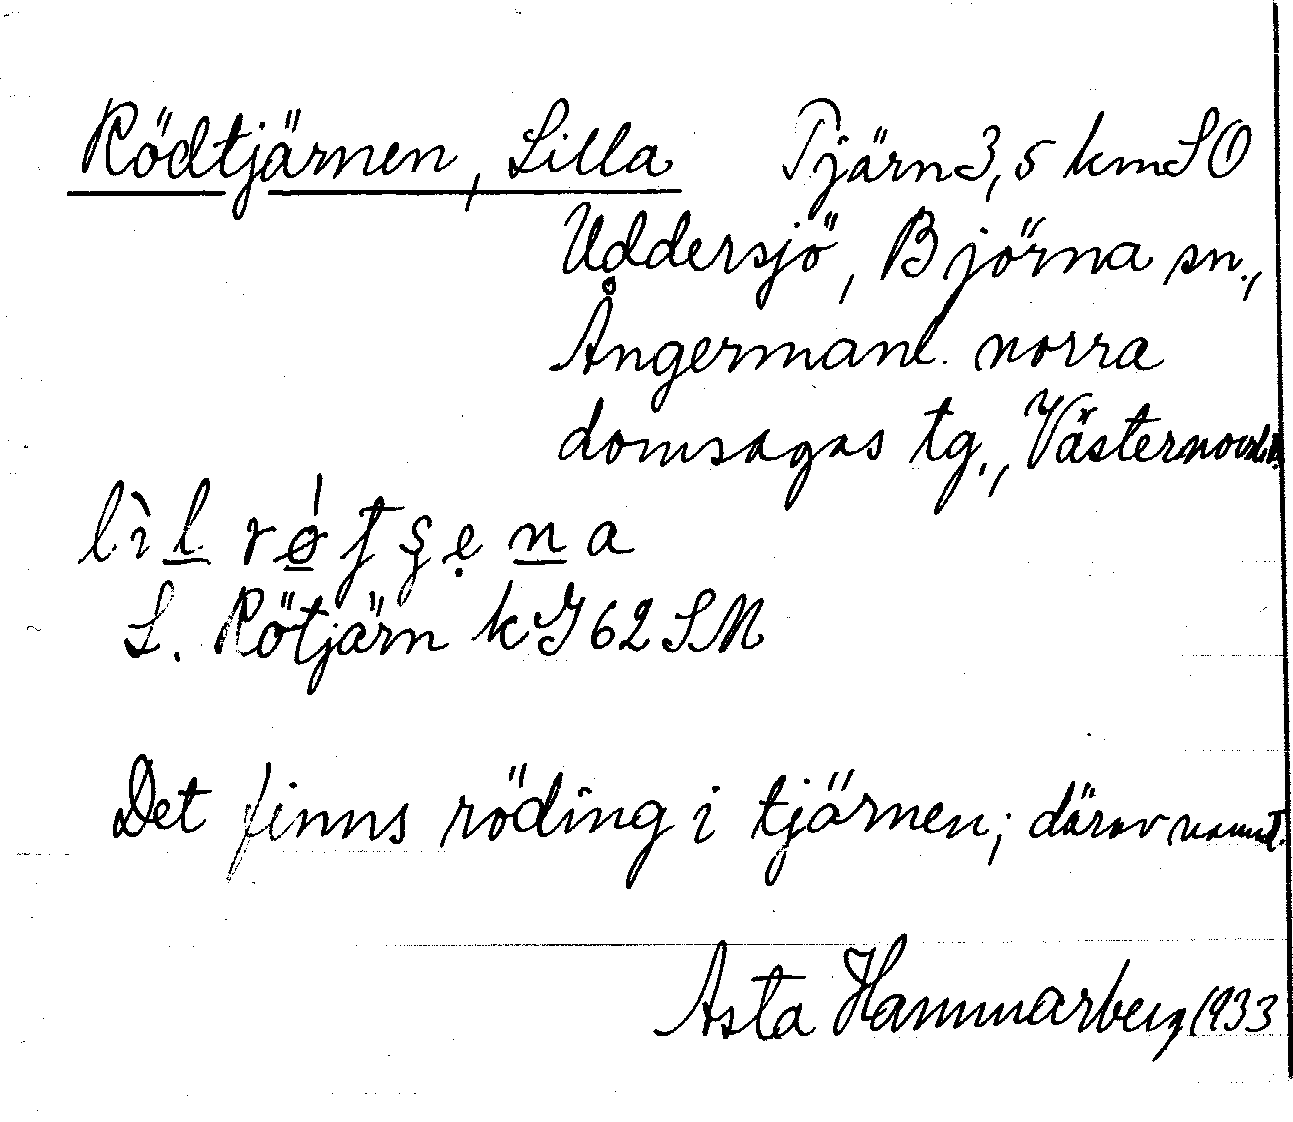 Rödtjärnen, Lilla Tjärn 3,5 km SO
Uddersjö, Björna sn.,
Ångermanl. norra
domsagas tg., Västernorrl. l.
lìl røʹtʂena
L. Rötjärn k J 62 SM
Det finns röding i tjärnen; därav namnet.
Asta Hammarberg 1933